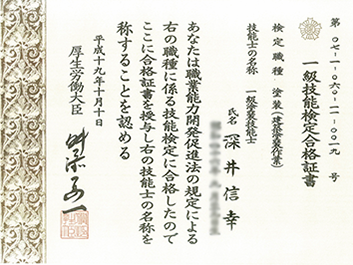 第07-1-06-11-0019号
一級技能検定合格証書
検定職種 塗装(建築塗装作業)
技能士の名称 一級塗装技能士
氏名 深井信幸
あなたは職業能力開発促進法の規定による
右の職種に係る技能検定に合格したので
ここに合格証書を授与し右の技能士の名称を
称することを認める
平成十九年十月十日
厚生労働大臣